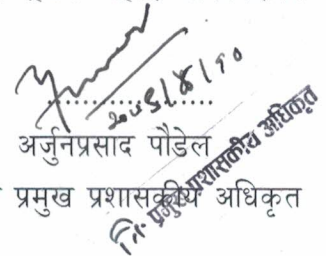 अर्जुनप्रसाद पौडेल
प्रमुख प्रशासकीय अधिकृत
नि. प्रमुख प्रशासकीय अधिकृत